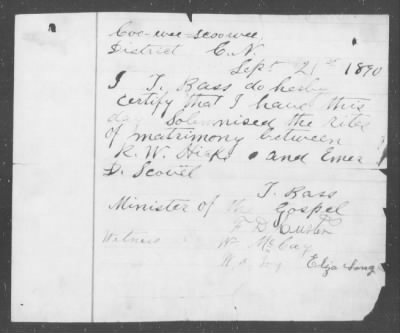 Coo-wee-scoowee
District C.N.
Sept 21st 1890
I T. Bass do herby
certify that I have this
day solemnised the rites
of matrimony between
R. W. Hicks and Emer
D. Scovel
T. Bass
Minister of the Gospel
F. D.
Witness Wm McCay
W. Eliza